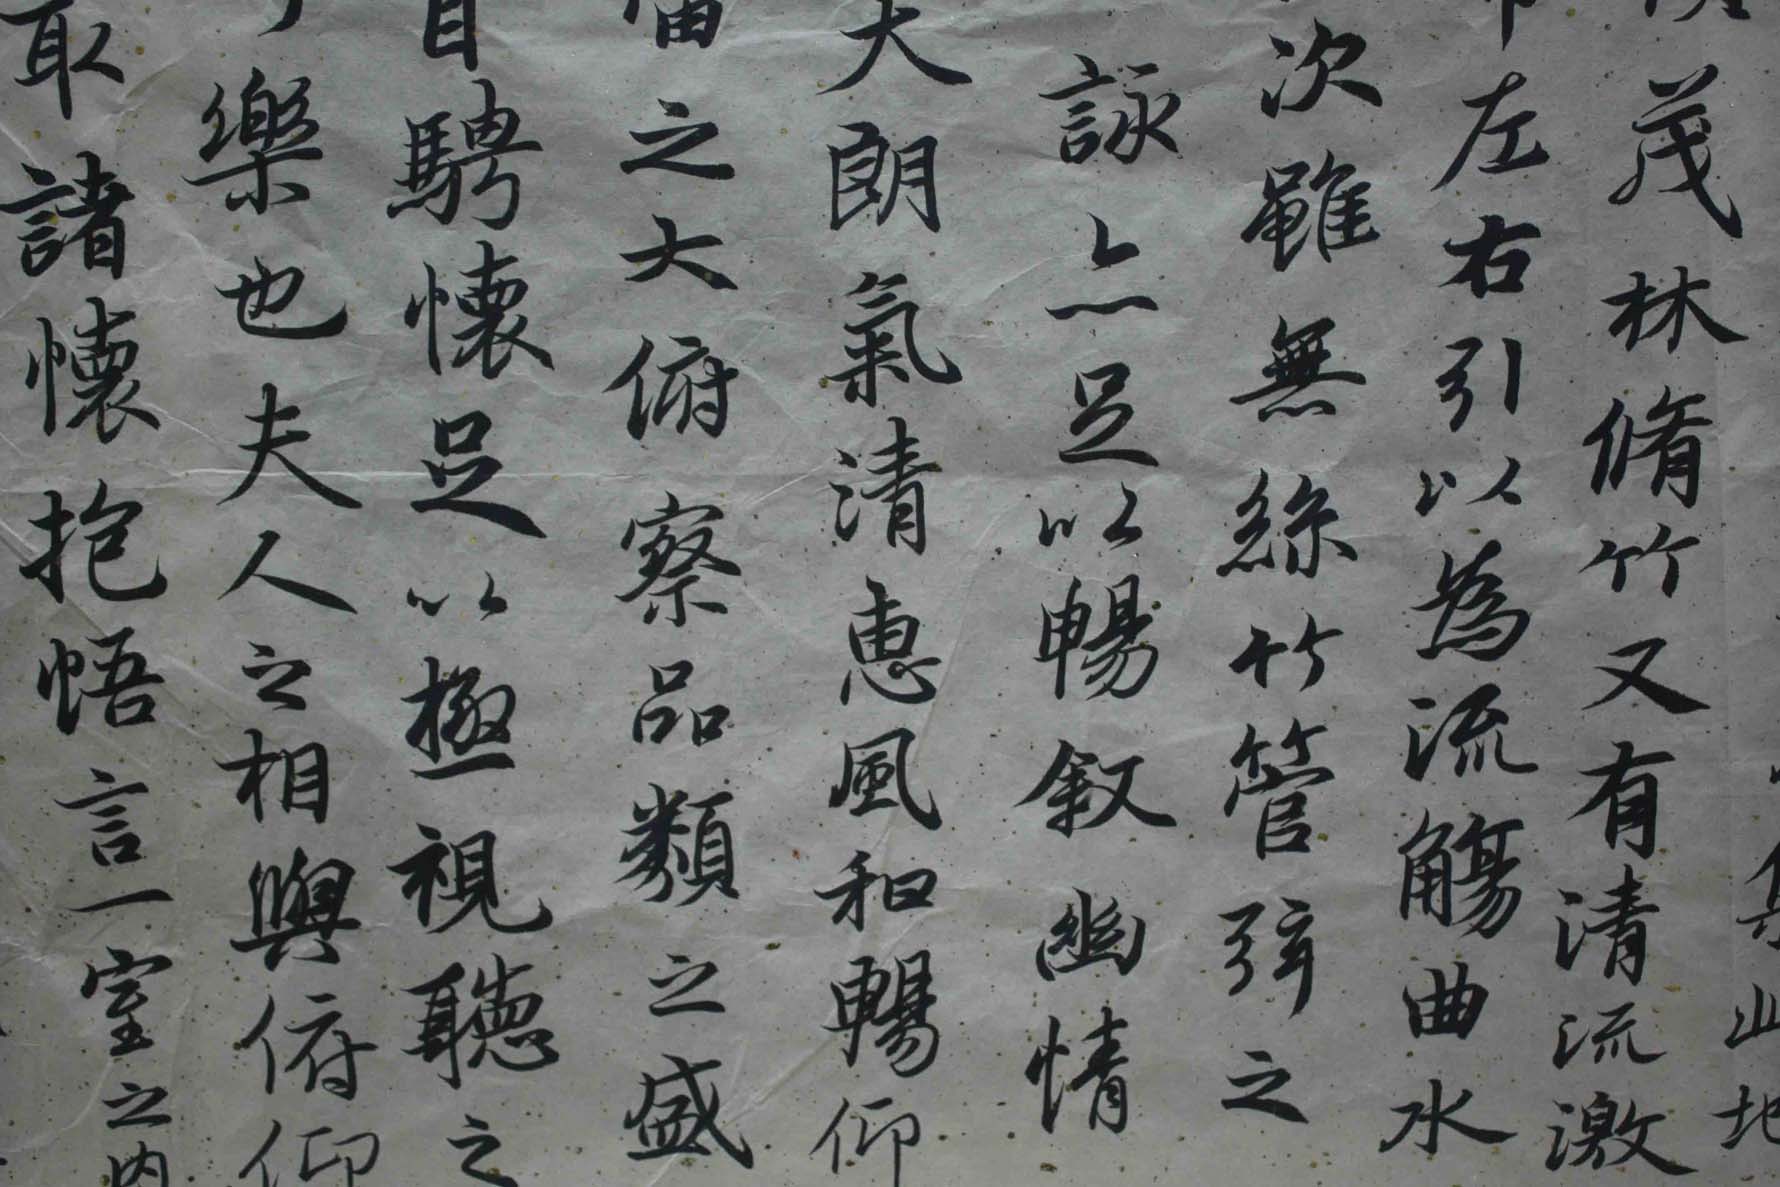 集此地
茂林脩竹又有清流激
左右引以為流觴曲水
次雖無絲竹管弦之
詠亦足以暢叙幽情
大朗氣清惠風和暢仰
宙之大俯察品類之盛
目騁懷足以極視聽之
樂也夫人之相與俯仰
取諸懷抱悟言一室之内